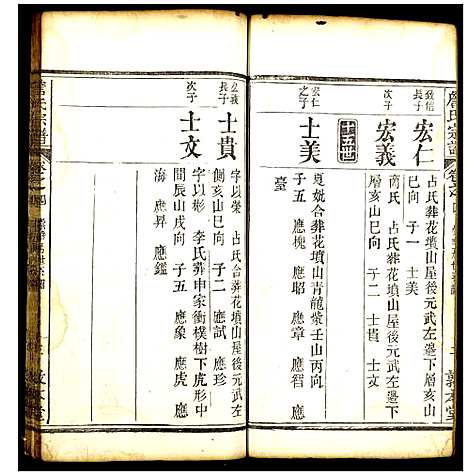 詹氏宗譜
卷之四
敦本堂
致信
長子
宏仁
占氏葬花墳山屋後元武左邊下層亥山
巳向 子一 士美
次子
宏義
南氏 占氏葬花墳山屋後元武左邊下
層亥山 子二 士貴 士文
十五世
宏仁
之子
士美
合葬花墳山青龍嘴壬山丙向
子五 應槐 應昭 應章 應智 應
臺
宏義
長子
士貴
字以榮 占氏合葬花墳山屋後元武左
側亥山巳向 子二 應試 應珍
次子
士文
字以彬 李氏葬申家衝樸樹下虎形中
間辰山戌向 子五 應象 應虎 應
海 應昇 應鑑
詹氏宗譜
卷之四
敦本堂